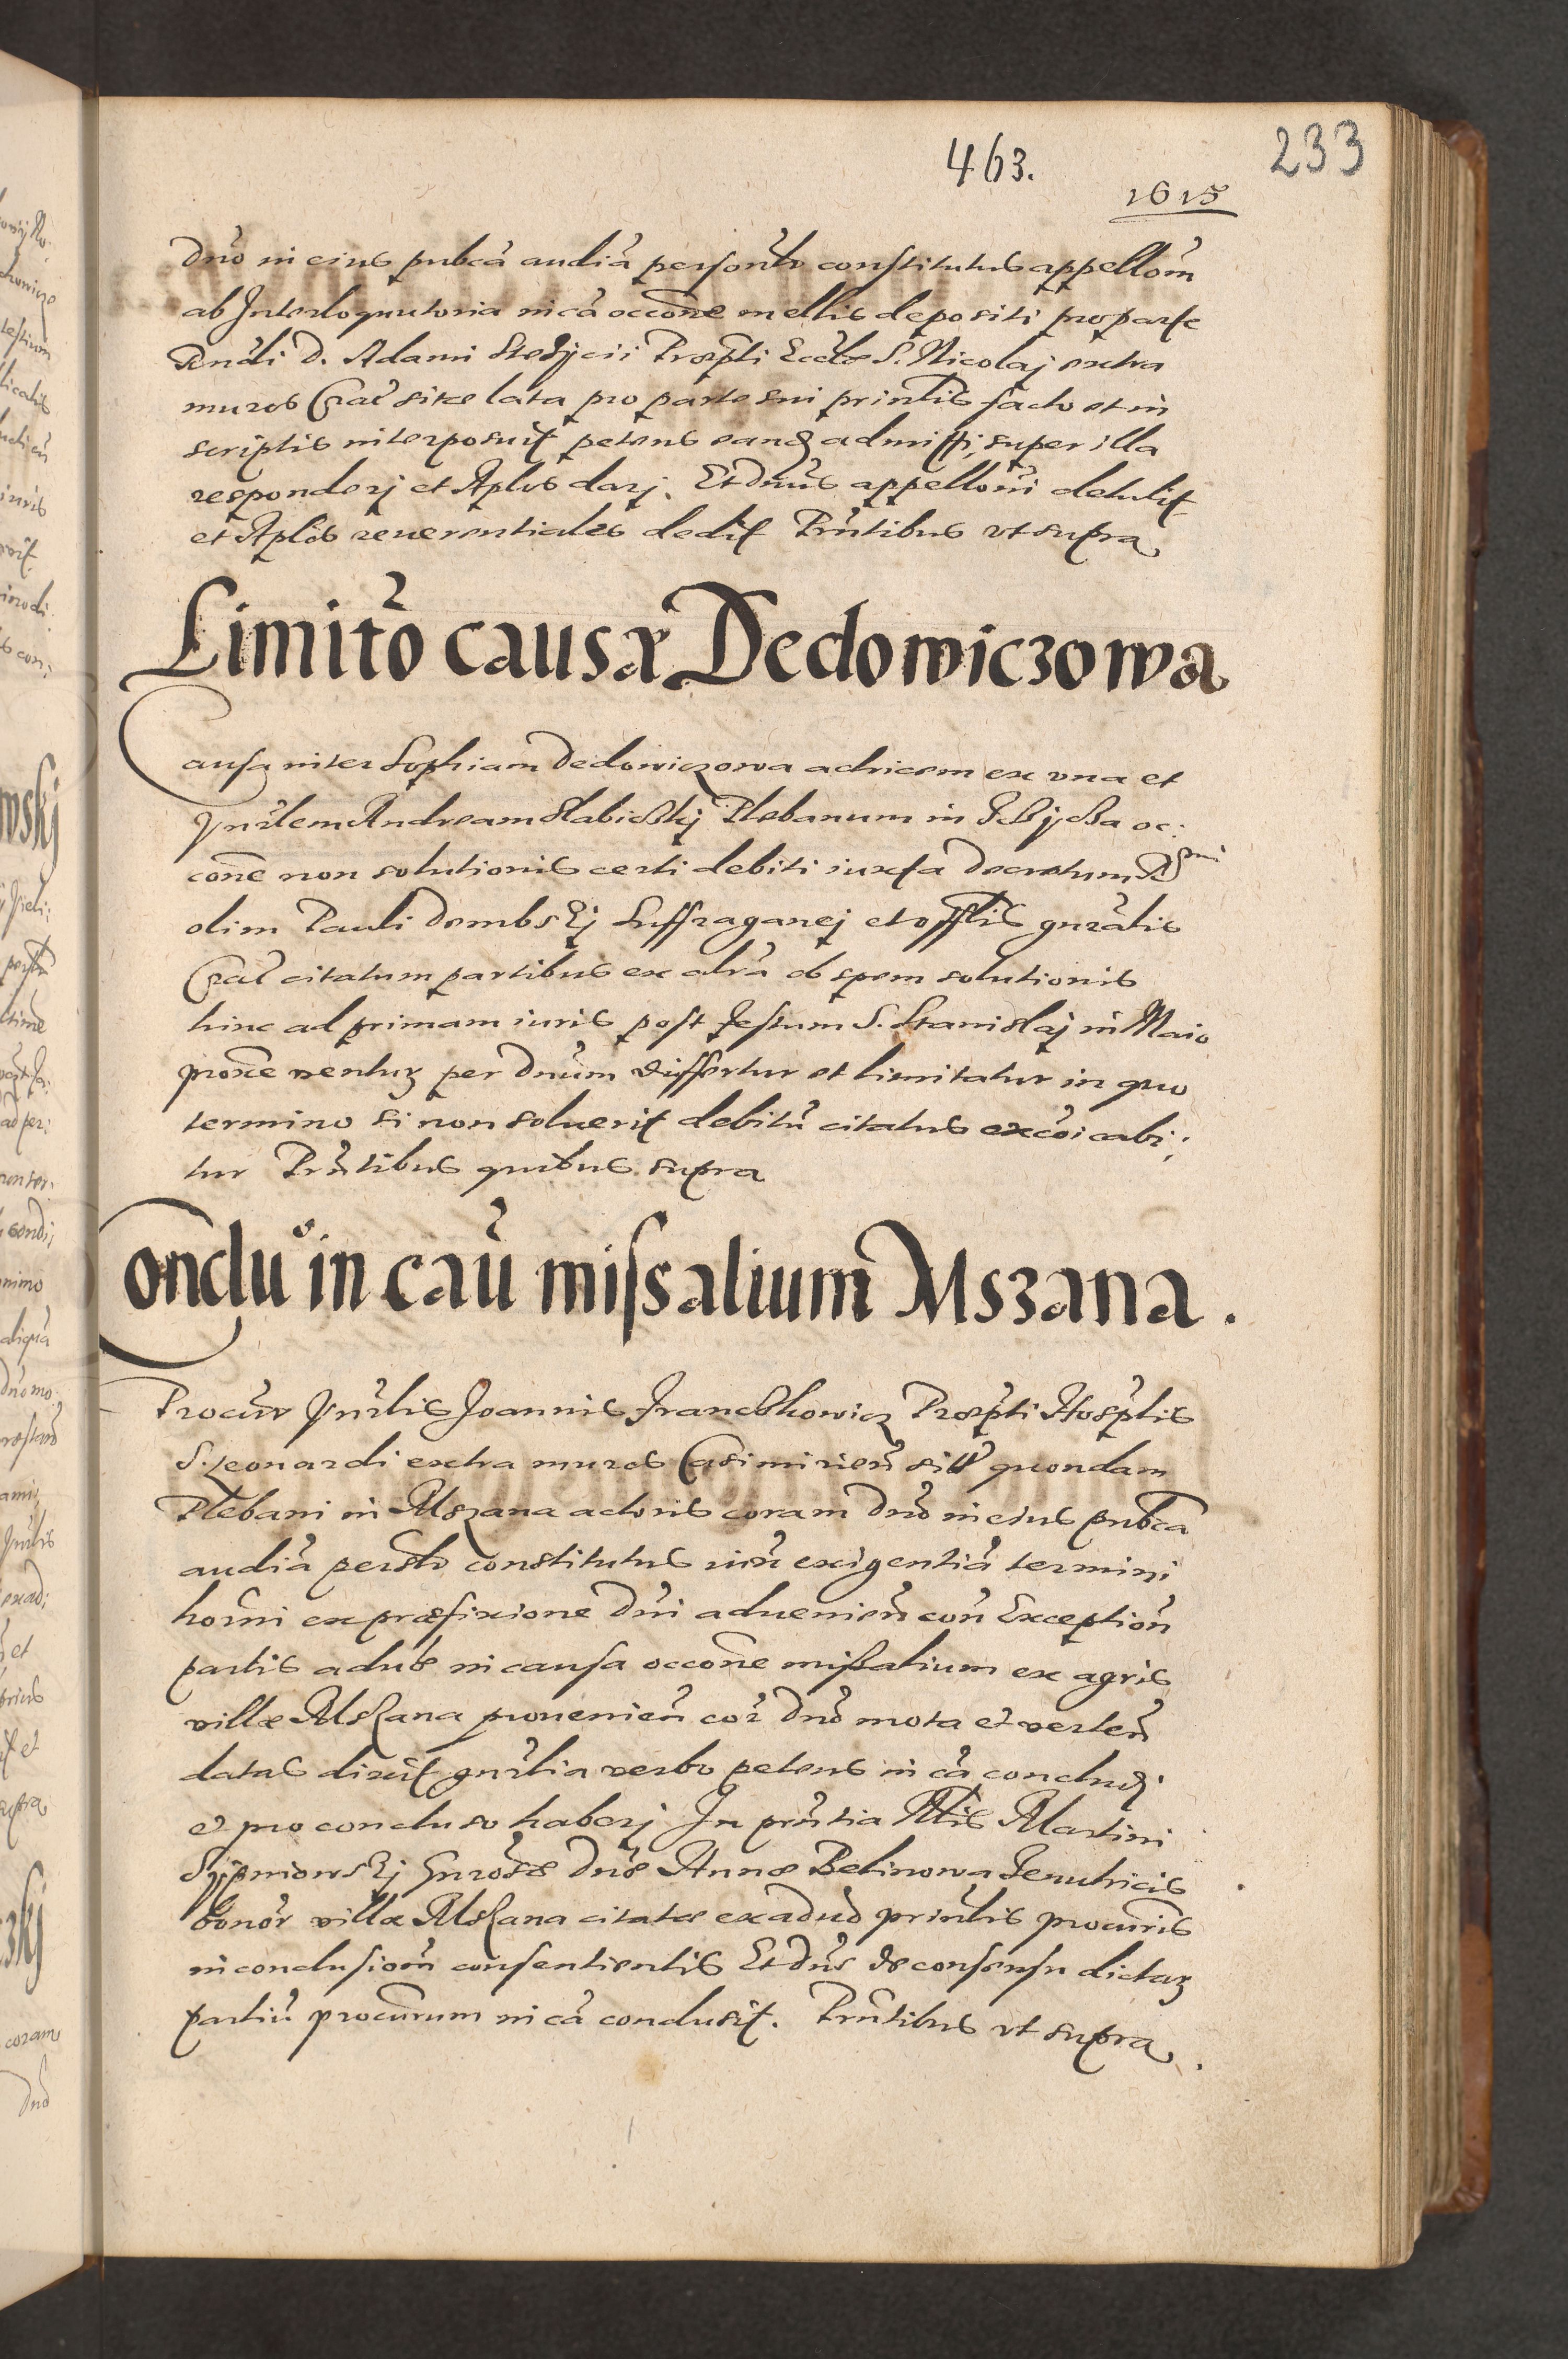 463.
233
1615
Dnō in eius pubcā audiā personlr constitutus appellōm
ab Interloquutoria in cā occōne mellis depositi pro parte
Rndi D. Adami Prœpti Eccłæ S. Nicolaj extra
muros Crac sitæ lata pro parte sui prinlis facto et in
scriptis interposuit petens eandem admitti, super illa
responderj et Aplos darj. Et Dnūs appellōni detulit
et Aplōs reuerentiales dedit Prñtibus vt supra
Limitō causæ Dedowiczowa
Causa inter Sophiam Dedowiczowa actricem ex vna et
Andream Slabickij Plebanum in oc:
cōne non solutionis certi debiti iuxta decretum
olim Pauli Dembskj Suffraganej et offlis gnrālis
Crac citatum partibus ex alrā ob spem solutionis
hinc ad primam iuris post festum S. Stanislaj in Maio
proxē ventur per Dnūm differtur et limitatur in quo
termino si non soluerit debitū citatus excōicabi:
tur Prñtibus quibus supra
Conclū in caū missalium Mszana.
Procūr Joannis Franckowicz Prœpti Hosptlis
S. Leonardi extra muros Casimirieñ siti quondam
Plebani in Mszana actoris coram Dnō in eius pubca
audiā persnlr constitutus iux̄ exigentiā termini
horñi ex præfixione Dñi aduenieñ con Exceptioñ
partis aduersæ in causa occōne missalium ex agris
villæ Mszana prouenieñ cor Dnō mota et verteñ
datas dixit gnrlia verbo petens in cā concludi
et pro concluso haberj In prñtia Martini
Gnrosæ Dnæ Annæ Belinowa Tenutricis
bonor villæ Mszana citatæ ex aduerso prinlis procuris
in conclusionem consentientis Et Dnūs de consensu dictar
partiū procurum in cā conclusit. Prñtibus vt supra.